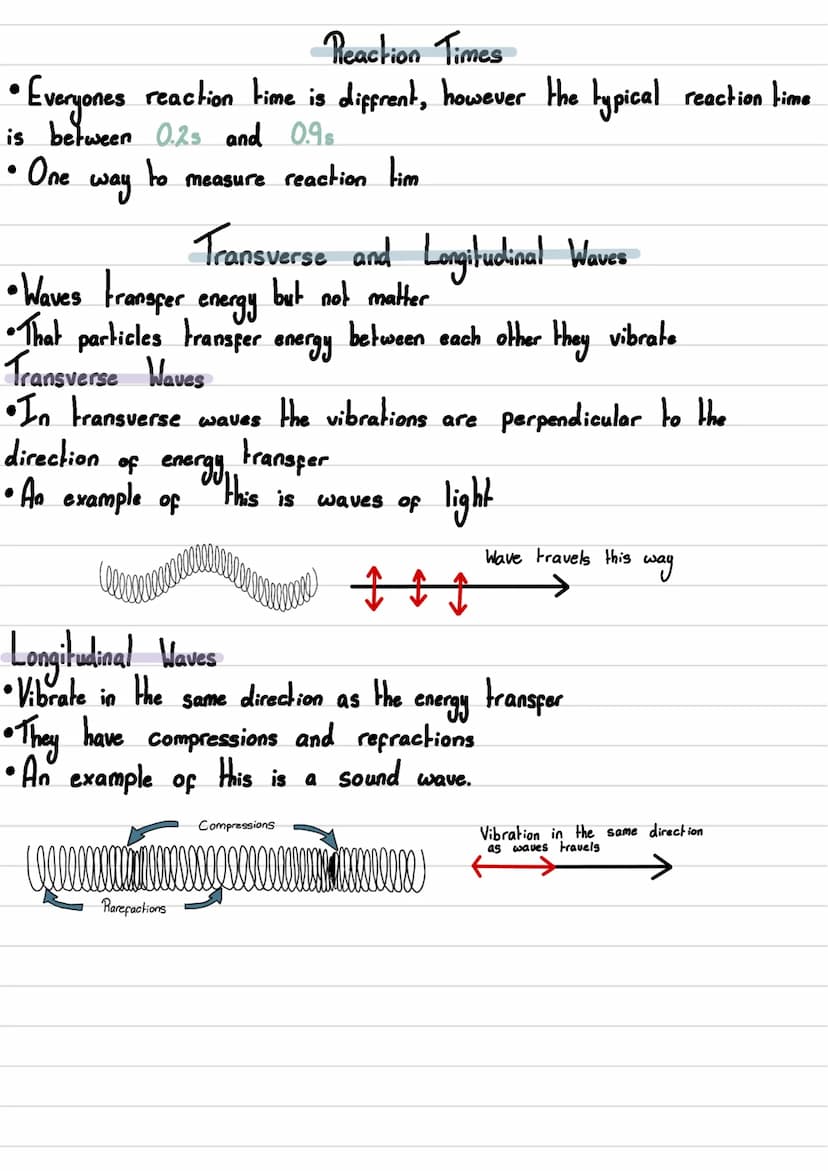 Reaction Times
• Everyones reaction time is diffrent, however the typical reaction time
is between 0.2s and 0.9s
• One way to measure reaction tim
Transverse and Longitudinal Waves
• Waves transfer energy but not matter
• That particles transfer energy between each other they vibrate
Transverse Waves
• In transverse waves the vibrations are perpendicular to the
direction of energy transfer
• An example of this is waves of light
Wave travels this way
Longitudinal Waves
• Vibrate in the same direction as the energy transfer
• They have compressions and refractions
• An example of this is a sound wave.
Compressions
Vibration in the same direction
as waves travels
Rarefactions